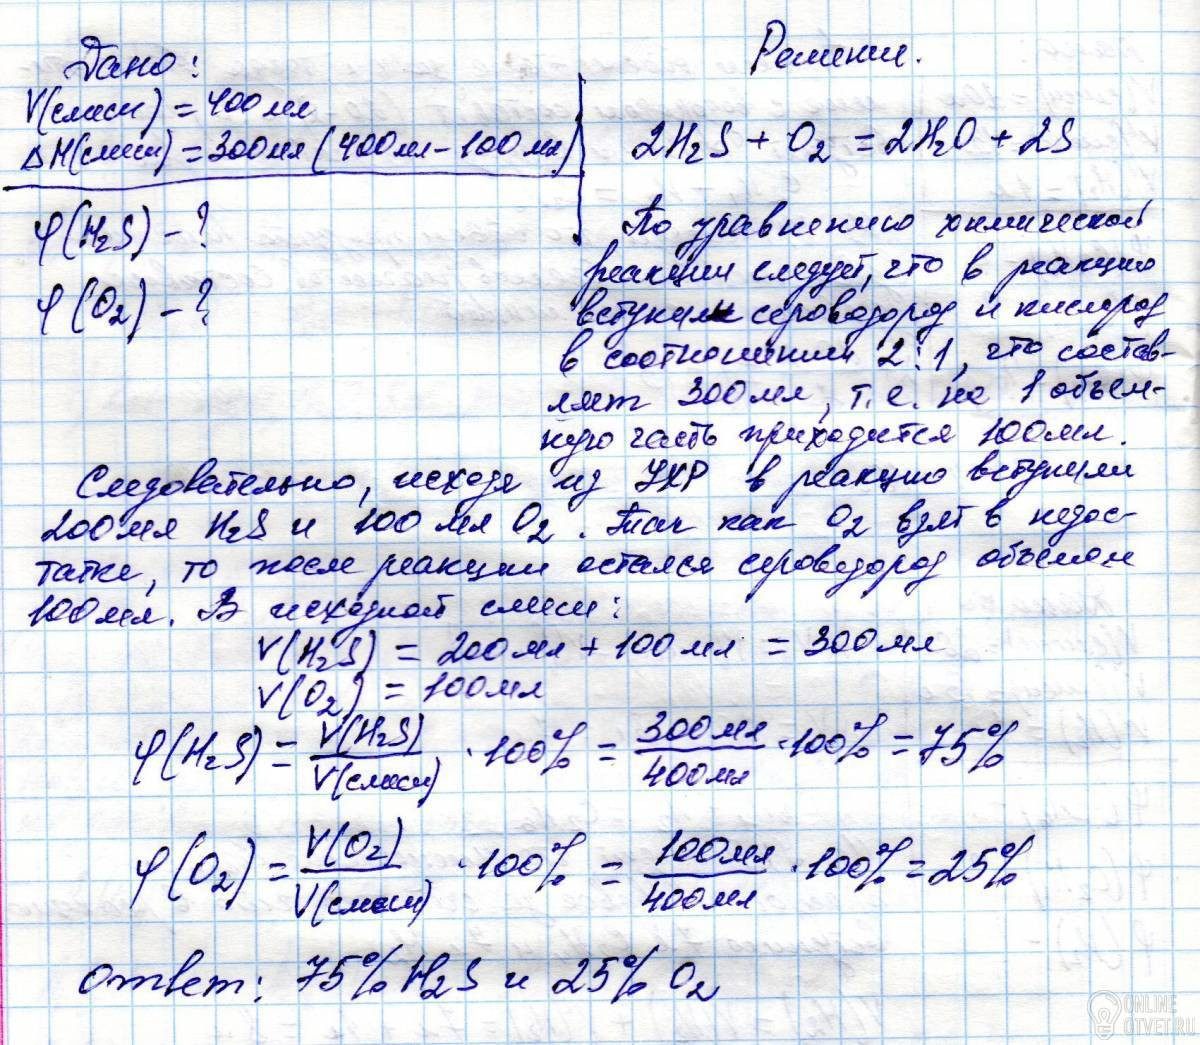 Дано:
V(смеси) = 400 мл
ΔМ(смеси) = 300мл (400мл - 100 мл)
φ(H₂S) - ?
φ(O₂) - ?
Решение.
2H₂S + O₂ = 2H₂O + 2S
По уравнению химической
реакции следует, что в реакцию
вступили сероводород и кислород
в соотношении 2:1, что состав-
ляет 300мл, т.е. на 1 объем-
ную часть приходится 100мл.
Следовательно, исходя из УХР в реакцию вступили
200мл H₂S и 100 мл O₂. Так как O₂ взят в недос-
татке, то после реакции остался сероводород объемом
100мл. В исходной смеси:
V(H₂S) = 200мл + 100 мл = 300мл
V(O₂) = 100мл
φ(H₂S) = V(H₂S)/V(смеси) · 100% = 300мл/400мл · 100% = 75%
φ(O₂) = V(O₂)/V(смеси) · 100% = 100мл/400мл · 100% = 25%
Ответ: 75% H₂S и 25% O₂
ONLINE
OTVET.RU